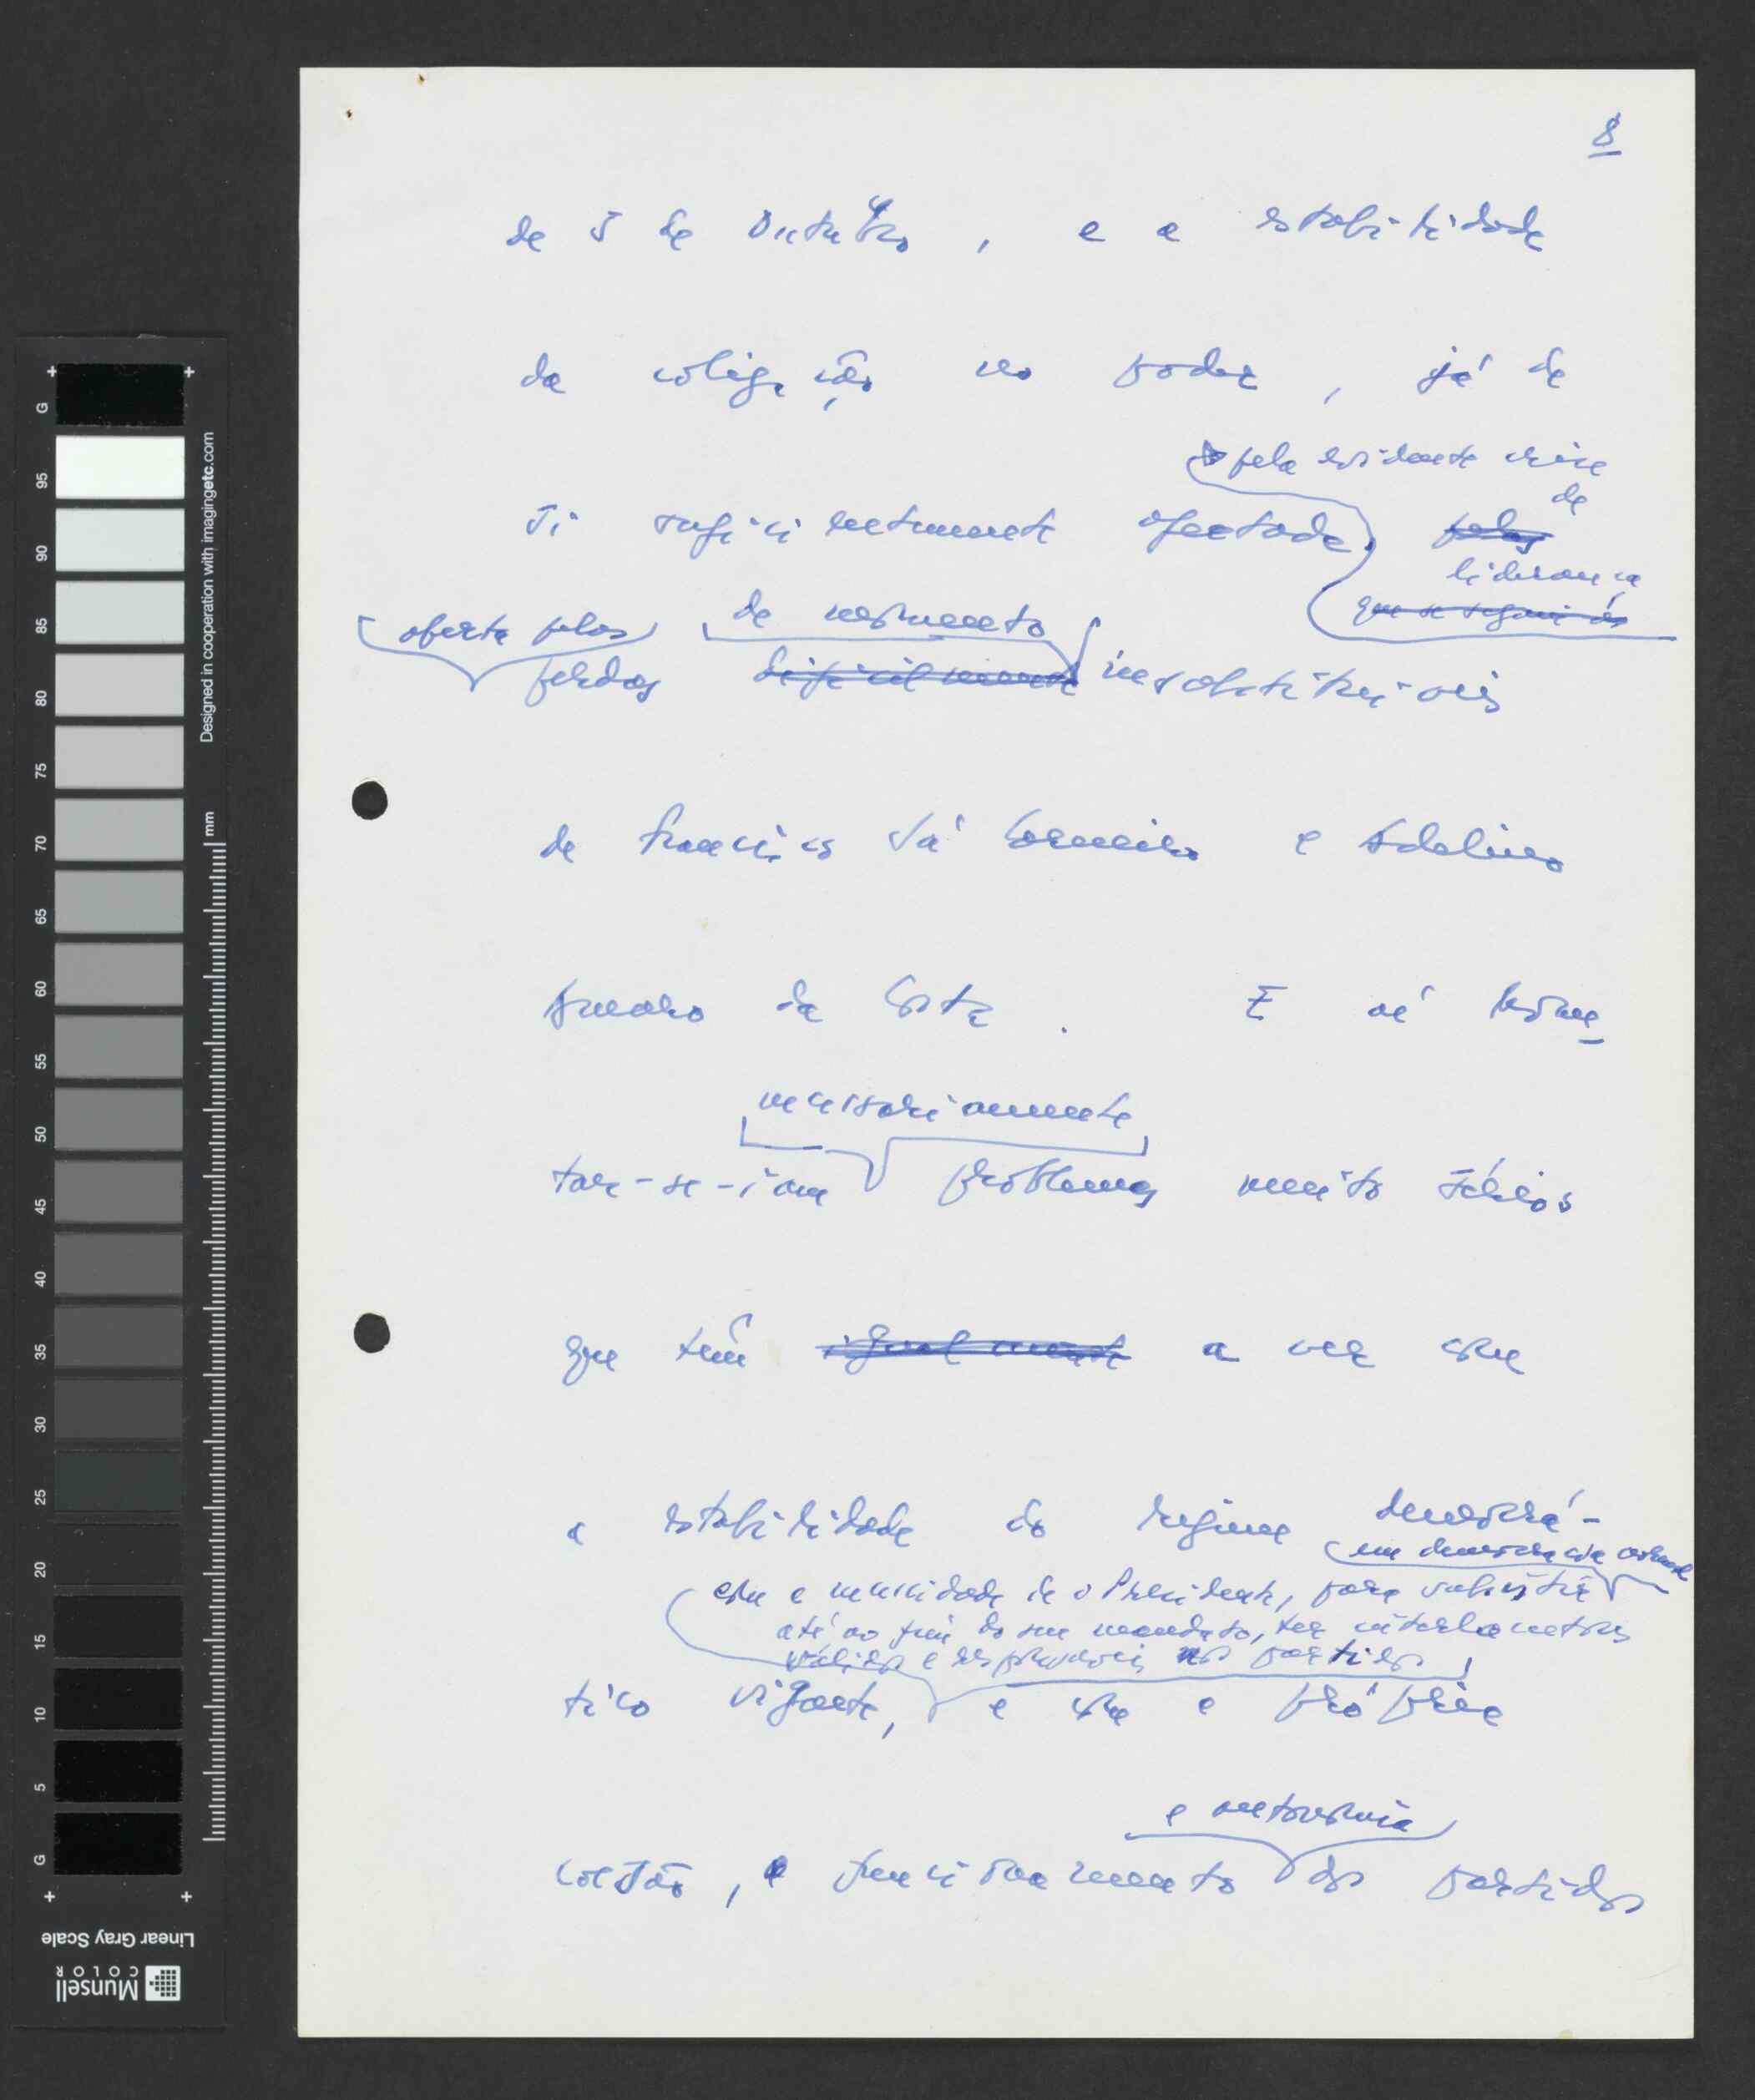 8
de 5 de Outubro, e a estabilidade
da coligação no poder, já de
pela evidente crise
de
si suficientemente afectada pelas
liderança
que se seguiu às
aberta pelas de momento
perdas dificilmente insubstituíveis
de Francisco Sá Carneiro e Adelino
Amaro da Costa. E aí levan
necessariamente
tar-se-iam problemas muito sérios
que têm igualmente a ver com
a estabilidade do regime democrá-
em democracia
com a necessidade de o Presidente, para subsistir
até ao fim do seu mandato, ter interlocutores
válidos e responsáveis nos partidos
tico vigente, e com a própria
e autonomia
coesão, e funcionamento dos partidos
G 95 90 85 80 75 70 65 60 55 50 45 40 35 30 25 20 15 10 5 G
mm
Designed in cooperation with imagingetc.com
Linear Gray Scale
Munsell
COLOR